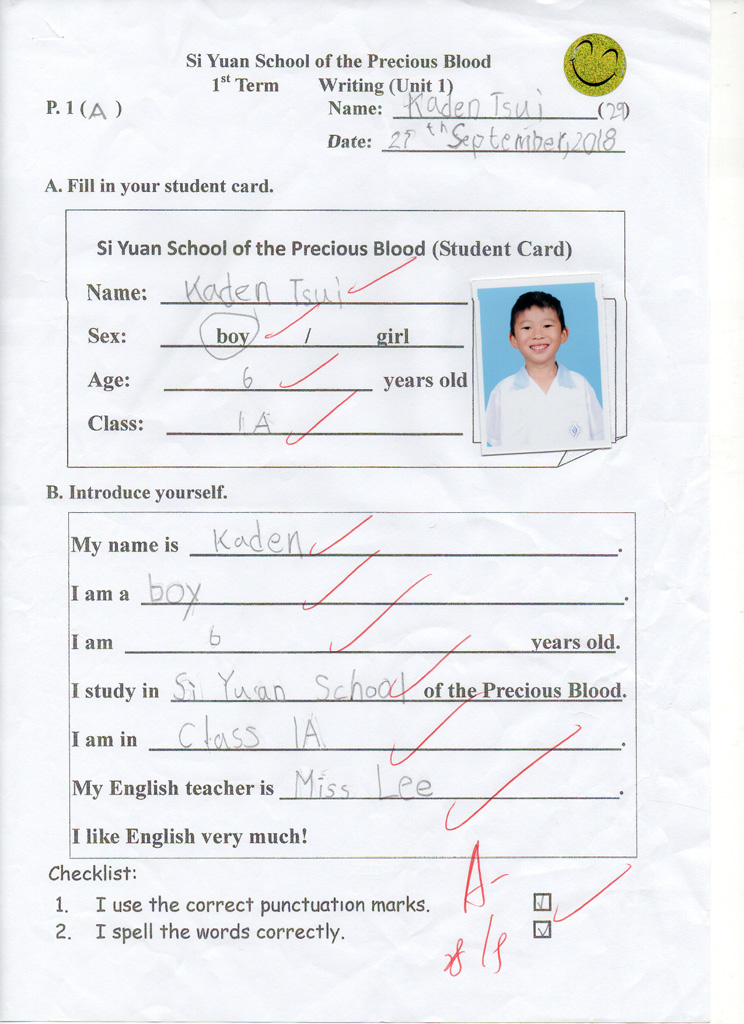 Si Yuan School of the Precious Blood
1st Term Writing (Unit 1)
P. 1 (A) Name: Kaden Tsui (29)
Date: 27th September, 2018
A. Fill in your student card.
Si Yuan School of the Precious Blood (Student Card)
Name: Kaden Tsui
Sex: boy / girl
Age: 6 years old
Class: 1A
B. Introduce yourself.
My name is Kaden.
I am a boy.
I am 6 years old.
I study in Si Yuan School of the Precious Blood.
I am in Class 1A.
My English teacher is Miss Lee.
I like English very much!
Checklist:
1. I use the correct punctuation marks.
2. I spell the words correctly.
A-